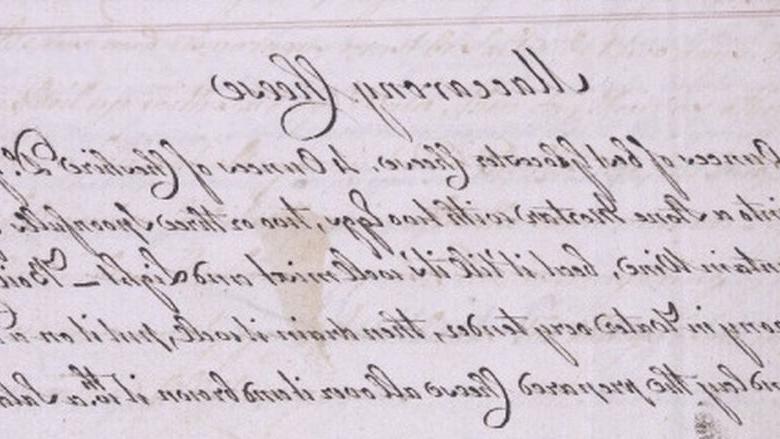 Maccarony Cheese
Ounces of best Glocester Cheese, 4 Ounces of Cheshire Do.
into a stone Mortar with two Eggs, two or three Spoonfulls
untain Wine, beat it 'till it is well mixt and light – Boil
rony in Water very tender, then drain it well, put it on a
nd lay the prepared Cheese all over it and brown it wth. a Sala